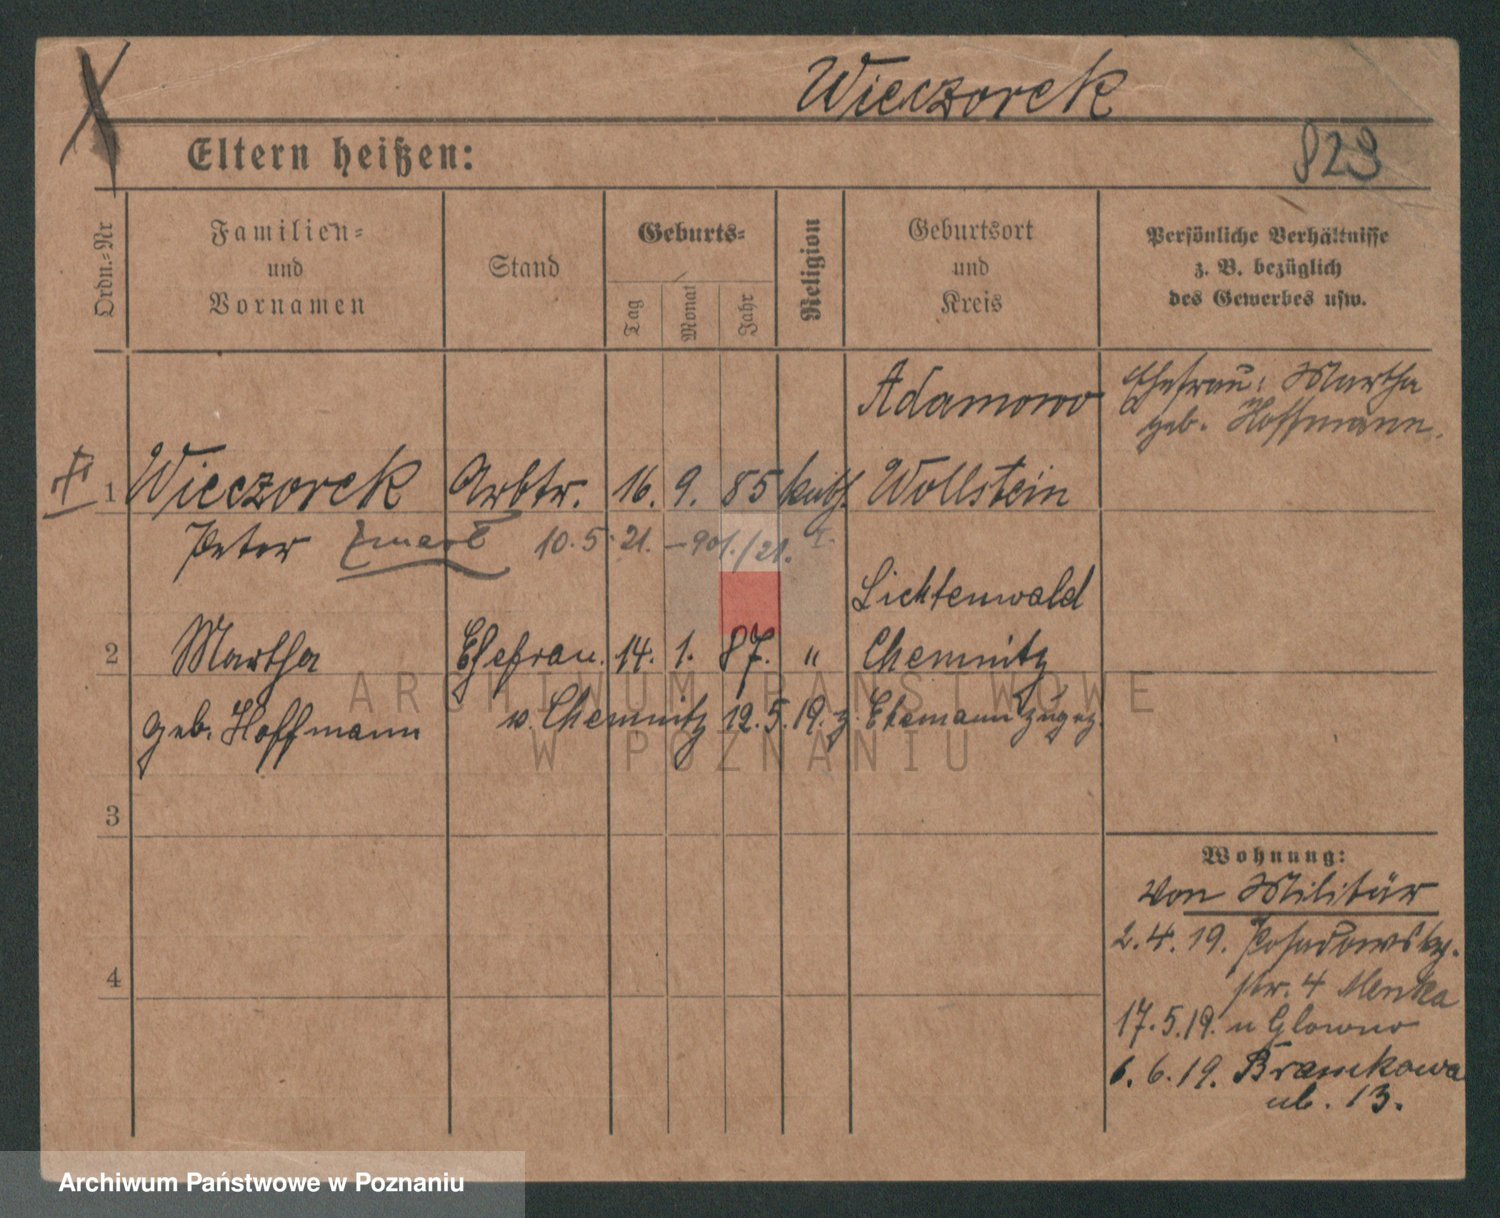 Wieczorek
Eltern heißen:
829
Ordn.=Nr
Familien=
und
Vornamen
Stand
Geburts=
Tag
Monat
Jahr
Religion
Geburtsort
und
Kreis
Persönliche Verhältnisse
z. B. bezüglich
des Gewerbes usw.
Adamowo
Ehefrau: Martha
geb. Hoffmann.
1 Wieczorek Arbtr. 16. 9. 85 kath. Wollstein
Peter zmarł 10.5.21. - 901./21.
Lichtenwald
2 Martha Ehefrau. 14. 1. 87. " Chemnitz
geb. Hoffmann v. Chemnitz 12.5.19. z. Ehemann zugez.
3
4
Wohnung:
Von Militär
2.4.19. Posadowsky-
str. 4 Menka
17.5.19. n Glowno
6.6.19. Bramkowa
ul. 13.
ARCHIWUM PAŃSTWOWE
W POZNANIU
Archiwum Państwowe w Poznaniu